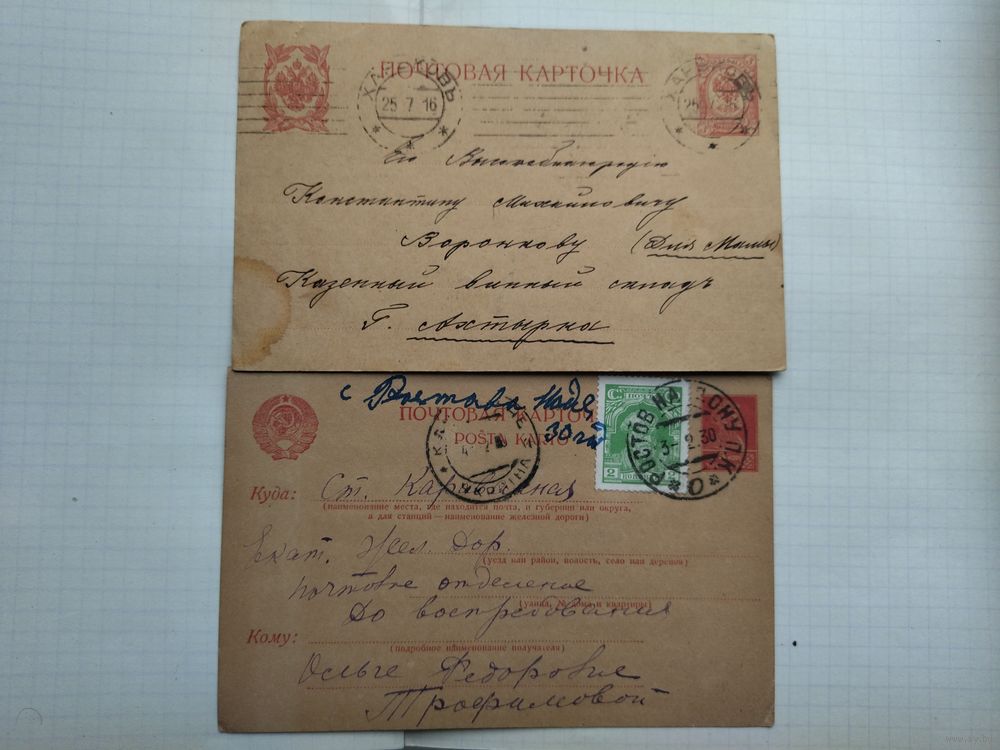 ПОЧТОВАЯ КАРТОЧКА
ХАРЬКОВЪ
25 7 16
ХАРЬКОВЪ
25
Его Высокоблагородію
Константину Михайловичу
Воронкову (Для Маши)
Казенный винный складъ
Г. Ахтырка
с Ростова Над
30 гд
ПОЧТОВАЯ КАРТОЧ
POŜTA KARTO
2
РОСТОВ НА ДОНУ П.К.
2 30
Куда: Ст. Кар ная
(наименование места, где находится почта, и губернии или округа,
а для станций—наименование железной дороги)
Екат. Жел. Дор.
(уезд или район, волость, село или деревня)
почтовое отделение
(улица, № дома и квартиры)
До востребования
Кому:
(подробное наименование получателя)
Ольге Федоровне
Трофимовой